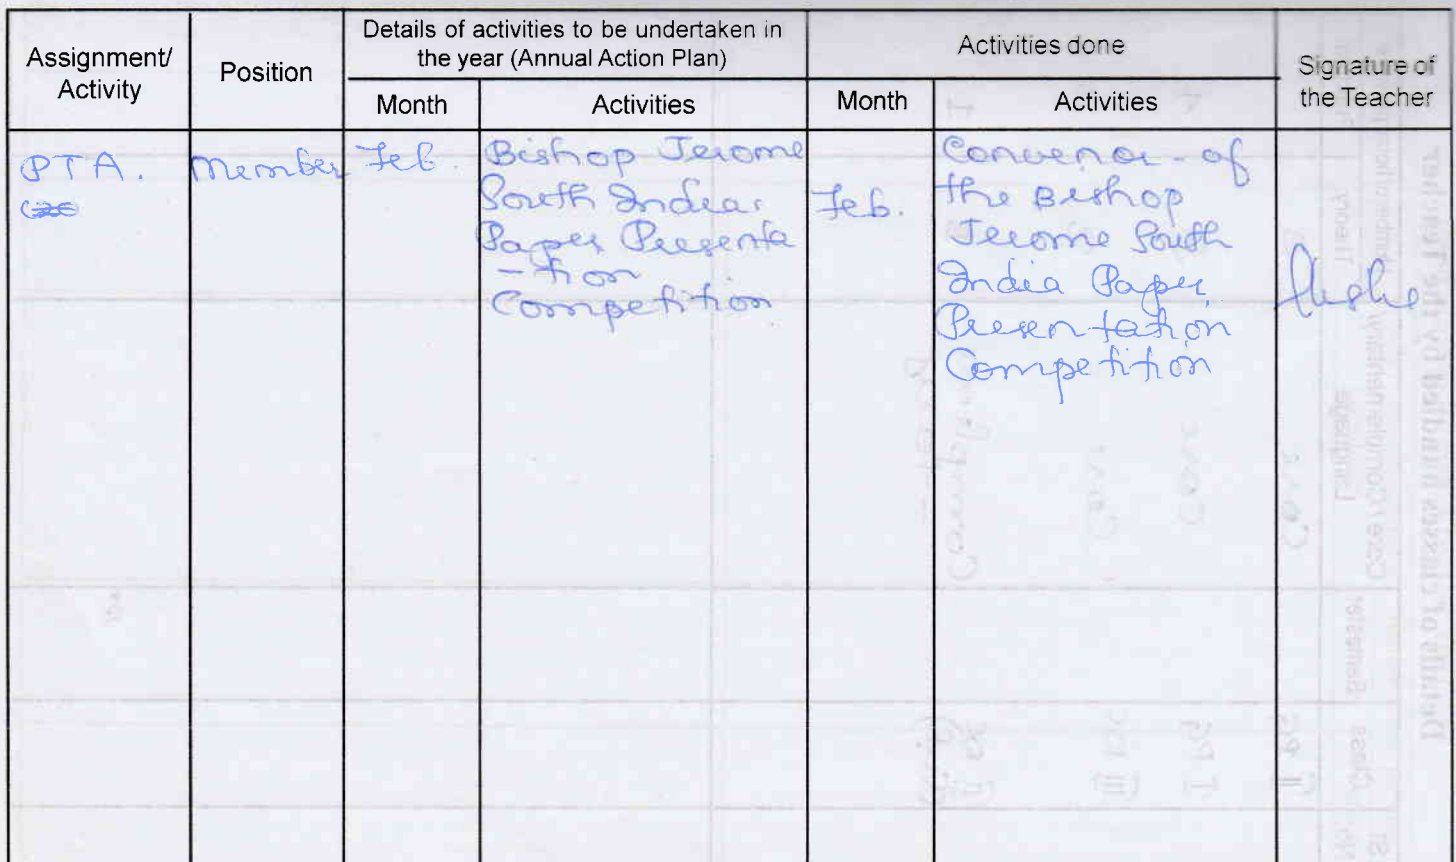 Assignment/
Activity
Position
Details of activities to be undertaken in
the year (Annual Action Plan)
Month
Activities
Activities done
Month
Activities
Signature of
the Teacher
PTA.
Member
Feb.
Bishop Jerome
South India
Paper Presenta
-tion
Competition
Feb.
Convenor - of
the Bishop
Jerome South
India Paper
Presentation
Competition